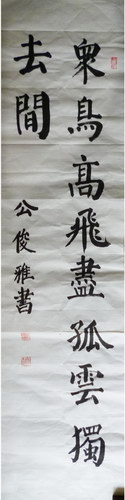 衆鳥高飛盡孤雲獨
去閒
公俊雅書